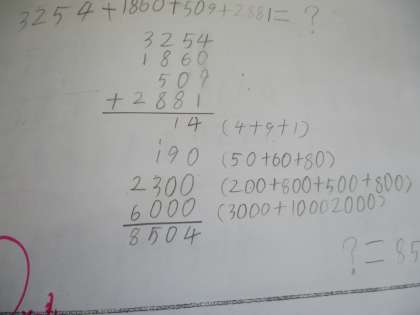 3254+1860+509+2881= ?
3254
1860
509
+ 2881
14 (4+9+1)
190 (50+60+80)
2300 (200+800+500+800)
6000 (3000+10002000)
8504
?=85